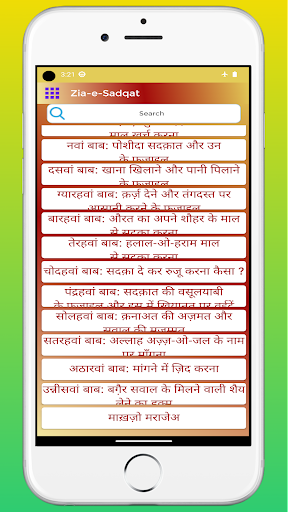 3:21
Zia-e-Sadqat
Search
माल खर्च करना
नवां बाब: पोशीदा सदक़ात और उन
के फ़ज़ाइल
दसवां बाब: खाना खिलाने और पानी पिलाने
के फ़ज़ाइल
ग्यारहवां बाब: क़र्ज़ देने और तंगदस्त पर
आसानी करने के फ़ज़ाइल
बारहवां बाब: औरत का अपने शोहर के माल
से सदक़ा करना
तेरहवां बाब: हलाल-ओ-हराम माल
से सदक़ा करना
चोदहवां बाब: सदक़ा दे कर रुजू करना कैसा ?
पंद्रहवां बाब: सदक़ात की वसूलयाबी
के फ़ज़ाइल और इस में ख़ियानत पर वईदें
सोलहवां बाब: क़नाअत की अज़मत और
सवाल की मज़म्मत
सतरहवां बाब: अल्लाह अज़्ज़-ओ-जल के नाम
पर माँगना
अठारवां बाब: मांगने में ज़िद करना
उन्नीसवां बाब: बग़ैर सवाल के मिलने वाली शैय
लेने का हुक्म
माख़ज़ो मराजेअ